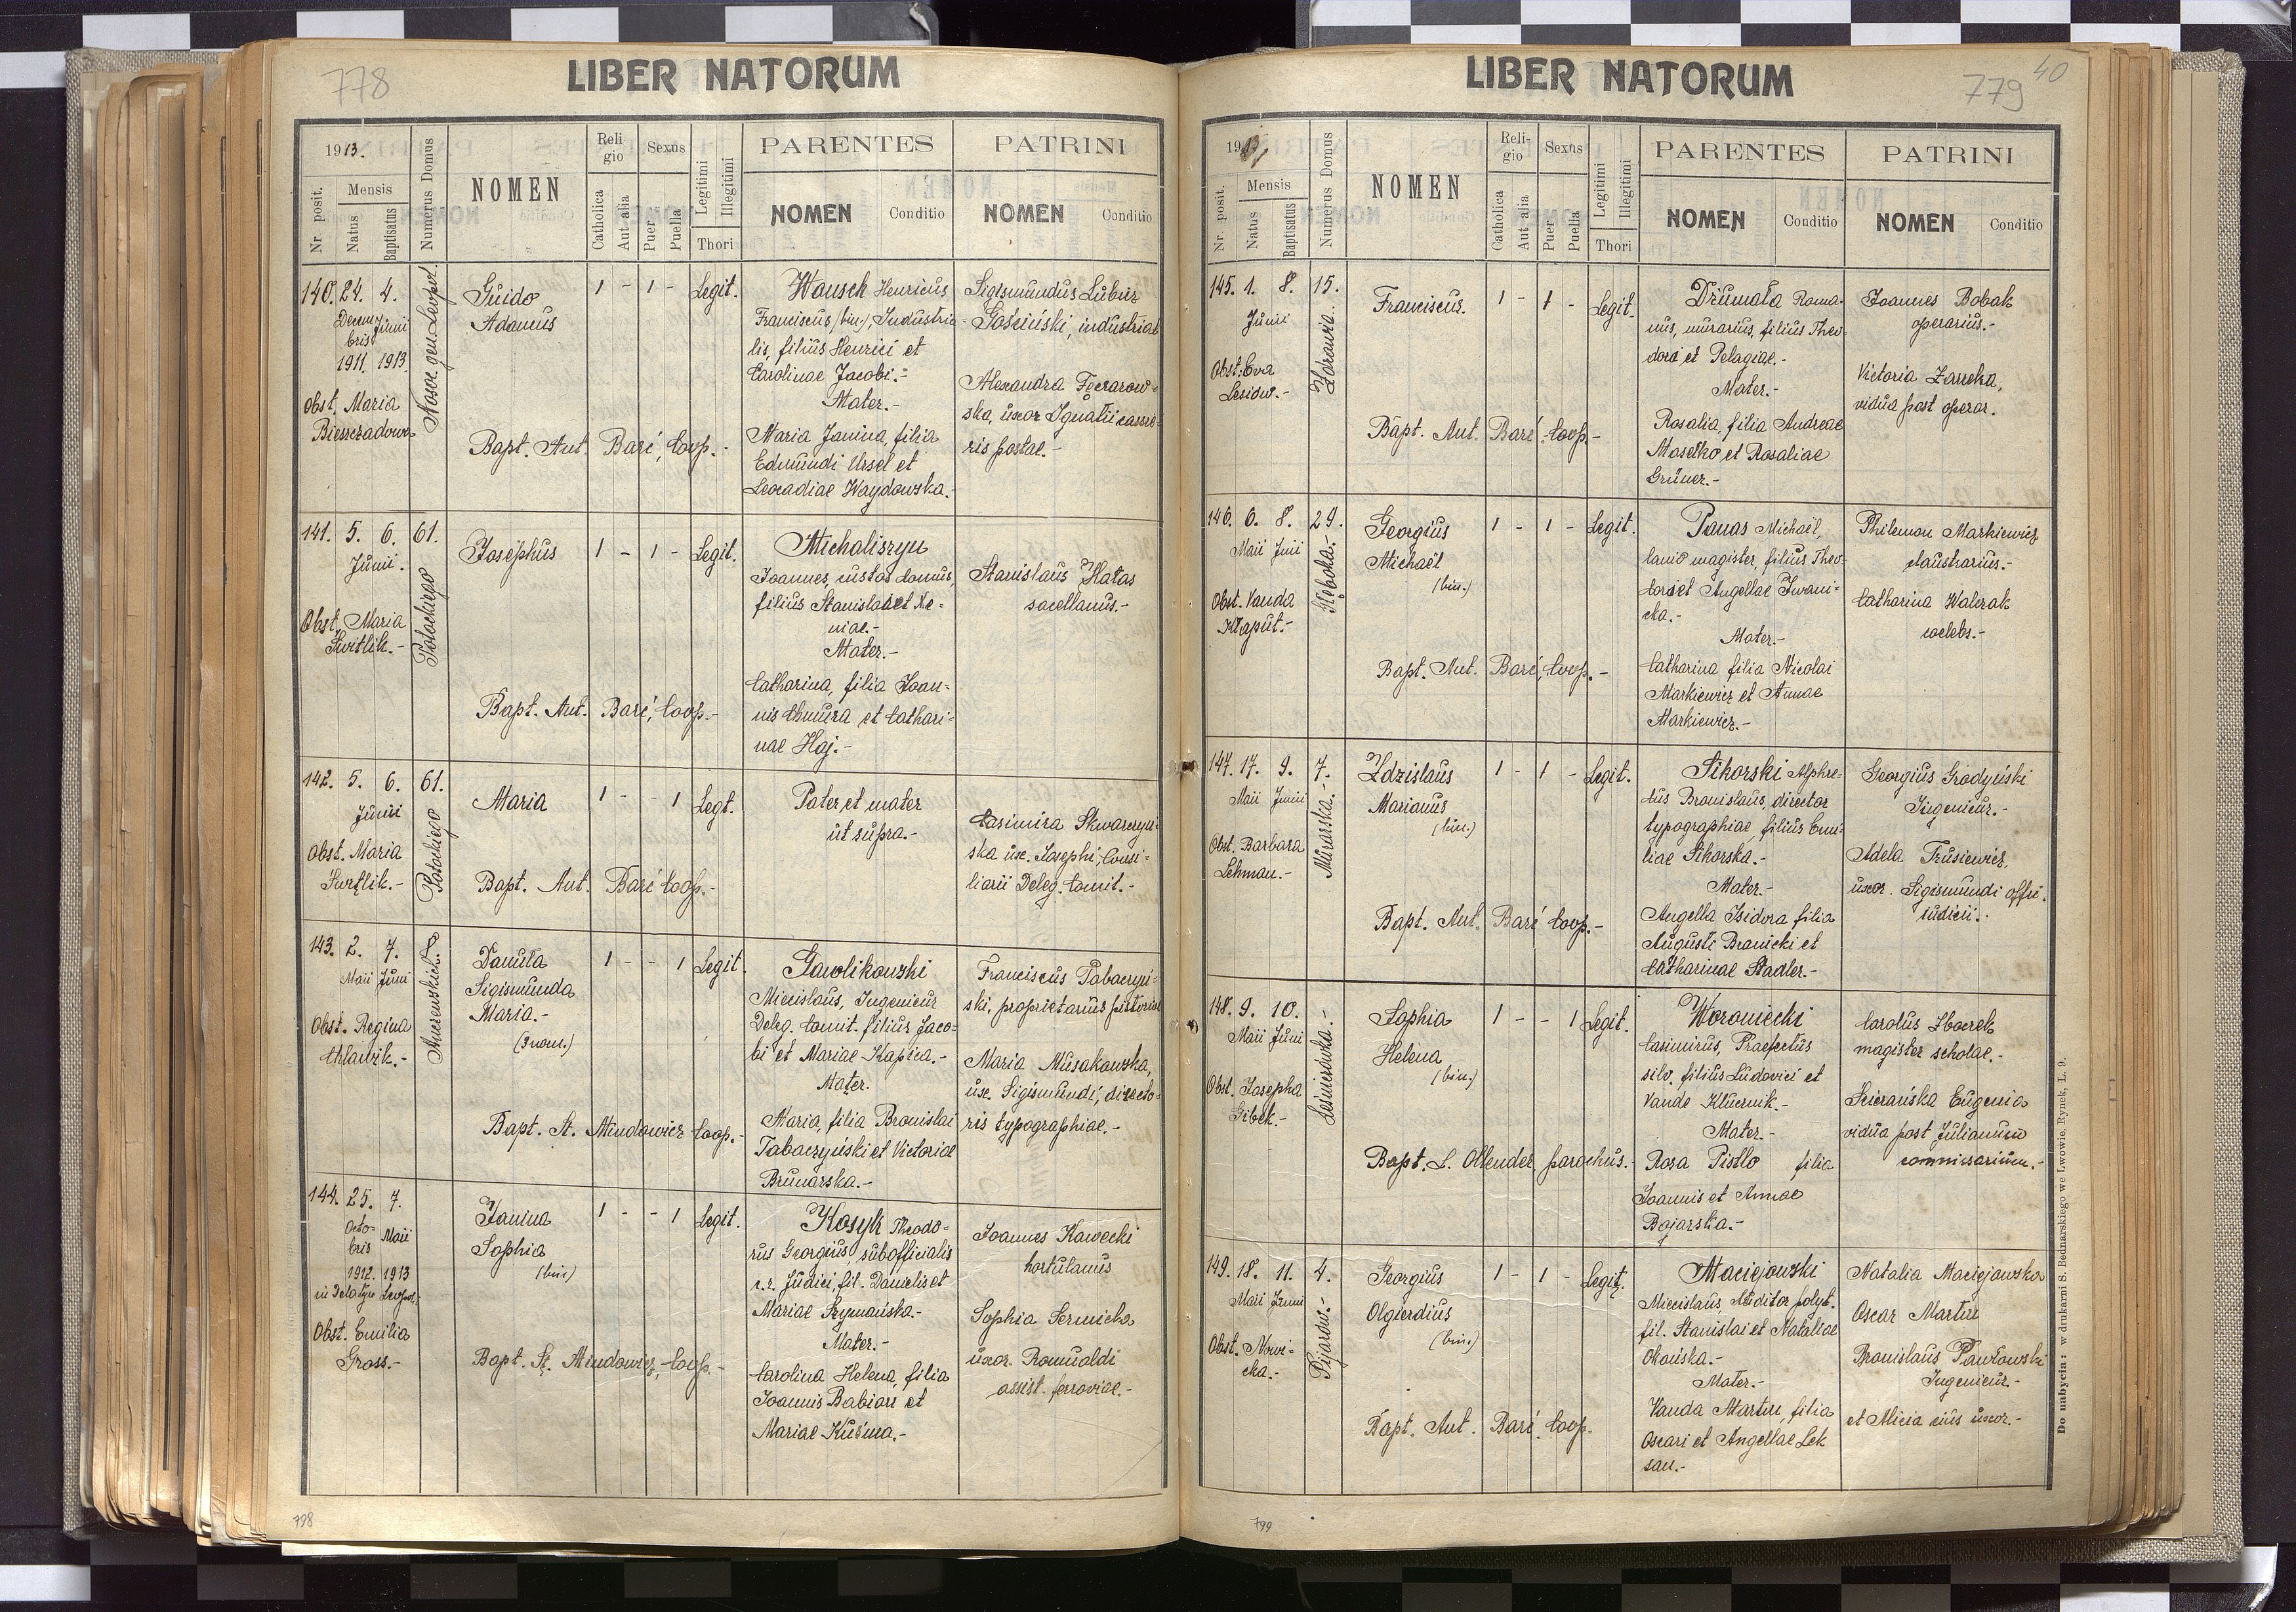 778
LIBER NATORUM
1913.
Nr posit.
Mensis
Natus
Baptisatus
Numerus Domus
NOMEN
Religio
Catholica
Aut alia
Sexus
Puer
Puella
Legitimi
Illegitimi
Thori
PARENTES
NOMEN Conditio
PATRINI
NOMEN Conditio
140. 24. 4.
Decembris Junii
1911. 1913.
Obst. Maria
Guido
Adamus
1 - 1 - Legit.
Bapt. Ant. Baré, Coop.-
Wausch Henricus
Franciscus (bin.), Industria-
lis, filius Henrici et
Carolinae Jacobi.-
Mater.-
Maria Janina, filia
Edmundi Ursel et
Leocadiae Waydowska.-
Sigismundus Lubicz
Gościński, industrial
Alexandra
ska, uxor Ignatii cassie-
ris postae.-
141. 5. 6. 61.
Junii.
Potockiego
Obst. Maria
Switlik.-
Josephus
1 - 1 - Legit.
Bapt. Ant. Baré, Coop.-
Michaliszyn
Joannes, custos domus,
filius Stanislai et Xe-
niae.-
Mater.-
Catharina, filia Joan-
nis Chmura et Cathari-
nae Haj.-
Stanislaus Hałas
sacellanus.-
142. 5. 6. 61.
Junii
Potockiego
Obst. Maria
Switlik.-
Maria
1 - - 1 Legt.
Bapt. Ant. Baré Coop.-
Pater et mater
ut supra.-
Casimira Skwarczyń-
ska ux. Josephi, Consi-
liarii Deleg. Comit.-
143. 2. 7. 8
Maii Junii
Obst. Regina
Chlawik.-
Danuta
Sigismunda
Maria.-
(3 nom.)
1 - - 1 Legit.
Bapt. St. Mindowicz Coop.-
Gawlikowski
Miecislaus, Ingenieur
Deleg. Comit. filius Jaco-
bi et Mariae Kapica.-
Mater.
Maria, filia Bronislai
Tabaczyński et Victoriae
Brunarska.-
Franciscus Tabaczyń-
ski, proprietarius
Maria Musakowska,
ux. Sigismundi, directo-
ris typographiae.-
144. 25. 7.
Octo- Maii
bris
1912. 1913
in Delatyn Leopol.-
Obst. Emilia
Gross.-
Janina
Sophia
(bin)
1 - - 1 Legit.
Bapt. St. Mindowicz, Coop.-
Kosyk Theodo-
rus Georgius, subofficialis
c.r. Judici, fil. Danielis et
Mariae Szymańska.-
Mater.-
Carolina Helena, filia
Joannis Babiarz et
Mariae Kuźma.-
Joannes Kawecki
hortulanus
Sophia Sernicka
uxor Romualdi
assist. ferroviae.-
798
779
40
LIBER NATORUM
1913
Nr. posit.
Mensis
Natus
Baptisatus
Numerus Domus
NOMEN
Religio
Catholica
Aut alia
Sexus
Puer
Puella
Legitimi
Illegitimi
Thori
PARENTES
NOMEN Conditio
PATRINI
NOMEN Conditio
145. 1. 8. 15.
Junii
Zdrowia.
Obst. Eva
Lesiow.-
Franciscus.
1 - 1 - Legit.
Bapt. Ant. Baré Coop.-
Dziumała Roma-
nus, murarius, filius Theo-
dori et Pelagiae.-
Mater.-
Rosalia, filia Andreae
Masełko et Rosaliae
Grüner.-
Joannes Bobak
operarius.-
Victoria Zarecka,
vidua post operar.
146. 6. 8. 29.
Maii Junii
Obst. Vanda
Kłaput.-
Georgius
Michaël
(bin.)
1 - 1 - Legit.
Bapt. Ant. Baré, Coop.-
Panas Michaël,
lanio magister, filius Theo-
dori et Angellae Iwani-
cka.-
Mater.-
Catharina filia Nicolai
Markiewicz et Annae
Markiewicz.-
Philemon Markiewicz
claustrarius.-
Catharina Walczak
caelebs.-
147. 17. 9. 7.
Maii Junii
Murarska.-
Obst. Barbara
Lehman.-
Zdzislaus
Marianus
(bin.)
1 - 1 - Legit.
Bapt. Ant. Baré Coop.-
Sikorski Alphre-
dus Bronislaus, director
typographiae, filius Emi-
liae Sikorska.-
Mater.-
Angella Isidora filia
Augusti Branicki et
Catharinae Stadler.-
Georgius Grodyński
Ingenieur.-
Adela Trusiewicz,
uxor Sigismundi offic.
iudicii.-
148. 9. 10.
Maii Junii
Leśniówka.-
Obst. Josepha
Gibek.-
Sophia
Helena
(bin.)
1 - - 1 Legit.
Bapt. L. Ollender parochus.-
Woroniecki
Casimirus, Praefectus
silv. filius Ludovici et
Vandae Klucznik.-
Mater.-
Rosa Pistlo filia
Joannis et Annae
Bojarska.-
Carolus Zbozek
magister scholae.-
Scierańska Eugenia
vidua post Julianum
commissarium.-
149. 18. 11. 4.
Maii Junii
Pijarów.-
Obst. Nowi-
cka.-
Georgius
Olgierdius
(bin.)
1 - 1 - Legit.
Bapt. Ant. Baré Coop.
Maciejowski
Miecislaus, Auditor polyt.
fil. Stanislai et Nataliae
Okońska.-
Mater.-
Vanda Martin, filia
Oscari et Angellae Lek
san.-
Natalia Maciejowska
Oscar Martin
Bronislaus Pawłowski
Ingenieur.-
et Alicia eius uxor.-
Do nabycia: w drukarni S. Bednarskiego we Lwowie, Rynek, L. 9.
799